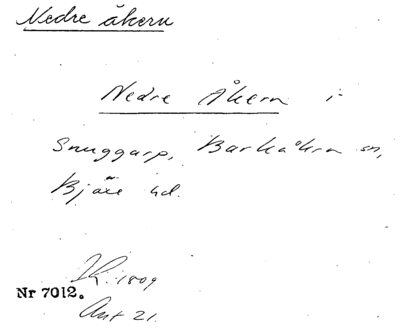 Nedre åkern
Nedre Åkern i
Snuggarp, Barkåkra sn,
Bjäre hd.
R. 1809
Nr 7012.
Akt 21.